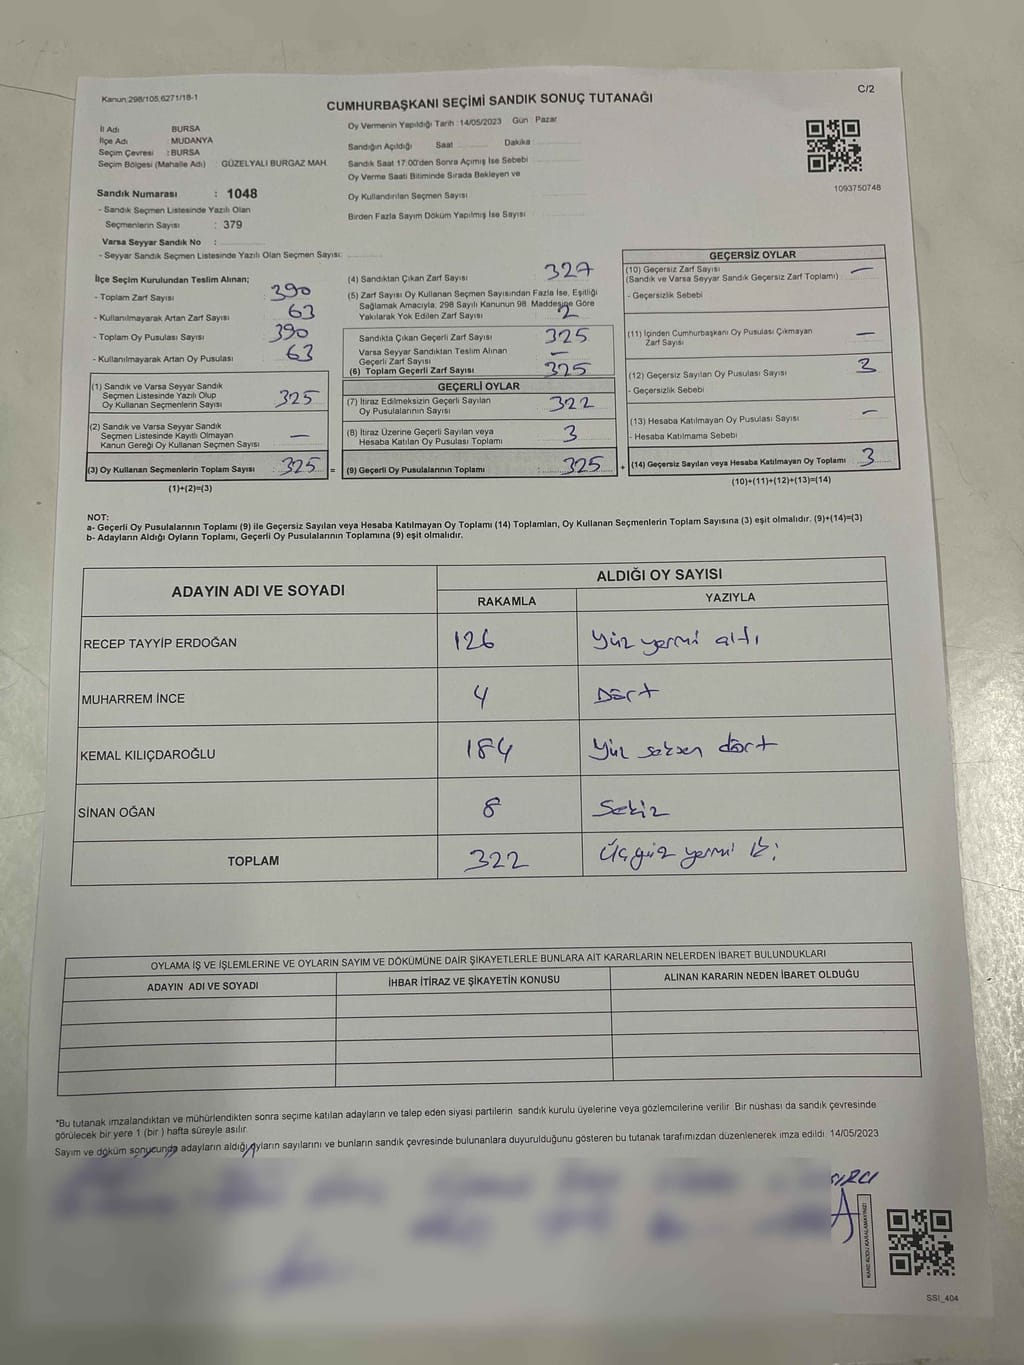 Kanun:298/105,6271/18-1
C/2
CUMHURBAŞKANI SEÇİMİ SANDIK SONUÇ TUTANAĞI
İl Adı BURSA
İlçe Adı : MUDANYA
Seçim Çevresi : BURSA
Seçim Bölgesi (Mahalle Adı) : GÜZELYALI BURGAZ MAH.
Sandık Numarası : 1048
- Sandık Seçmen Listesinde Yazılı Olan
Seçmenlerin Sayısı : 379
Varsa Seyyar Sandık No :
- Seyyar Sandık Seçmen Listesinde Yazılı Olan Seçmen Sayısı:
Oy Vermenin Yapıldığı Tarih : 14/05/2023 Gün : Pazar
Sandığın Açıldığı Saat Dakika :
Sandık Saat 17:00'den Sonra Açımış İse Sebebi
Oy Verme Saati Bitiminde Sırada Bekleyen ve
Oy Kullandırılan Seçmen Sayısı
Birden Fazla Sayım Döküm Yapılmış İse Sayısı
1093750748
İlçe Seçim Kurulundan Teslim Alınan;
- Toplam Zarf Sayısı 390
- Kullanılmayarak Artan Zarf Sayısı 63
- Toplam Oy Pusulası Sayısı 390
- Kullanılmayarak Artan Oy Pusulası 63
(1) Sandık ve Varsa Seyyar Sandık
Seçmen Listesinde Yazılı Olup
Oy Kullanan Seçmenlerin Sayısı 325
(2) Sandık ve Varsa Seyyar Sandık
Seçmen Listesinde Kayıtlı Olmayan
Kanun Gereği Oy Kullanan Seçmen Sayısı —
(3) Oy Kullanan Seçmenlerin Toplam Sayısı 325 =
(1)+(2)=(3)
(4) Sandıktan Çıkan Zarf Sayısı 327
(5) Zarf Sayısı Oy Kullanan Seçmen Sayısından Fazla İse, Eşitliği
Sağlamak Amacıyla, 298 Sayılı Kanunun 98. Maddesine Göre
Yakılarak Yok Edilen Zarf Sayısı 2
Sandıkta Çıkan Geçerli Zarf Sayısı 325
Varsa Seyyar Sandıktan Teslim Alınan
Geçerli Zarf Sayısı —
(6) Toplam Geçerli Zarf Sayısı 325
GEÇERLİ OYLAR
(7) İtiraz Edilmeksizin Geçerli Sayılan
Oy Pusulalarının Sayısı 322
(8) İtiraz Üzerine Geçerli Sayılan veya
Hesaba Katılan Oy Pusulası Toplamı 3
(9) Geçerli Oy Pusulalarının Toplamı : 325 +
GEÇERSİZ OYLAR
(10) Geçersiz Zarf Sayısı —
(Sandık ve Varsa Seyyar Sandık Geçersiz Zarf Toplamı)
- Geçersizlik Sebebi
(11) İçinden Cumhurbaşkanı Oy Pusulası Çıkmayan
Zarf Sayısı —
(12) Geçersiz Sayılan Oy Pusulası Sayısı 3
- Geçersizlik Sebebi
(13) Hesaba Katılmayan Oy Pusulası Sayısı —
- Hesaba Katılmama Sebebi
(14) Geçersiz Sayılan veya Hesaba Katılmayan Oy Toplamı 3
(10)+(11)+(12)+(13)=(14)
NOT:
a- Geçerli Oy Pusulalarının Toplamı (9) ile Geçersiz Sayılan veya Hesaba Katılmayan Oy Toplamı (14) Toplamları, Oy Kullanan Seçmenlerin Toplam Sayısına (3) eşit olmalıdır. (9)+(14)=(3)
b- Adayların Aldığı Oyların Toplamı, Geçerli Oy Pusulalarının Toplamına (9) eşit olmalıdır.
ADAYIN ADI VE SOYADI
ALDIĞI OY SAYISI
RAKAMLA YAZIYLA
RECEP TAYYİP ERDOĞAN 126 Yüz yermi altı
MUHARREM İNCE 4 Dört
KEMAL KILIÇDAROĞLU 184 Yüz seksen dört
SİNAN OĞAN 8 Sekiz
TOPLAM 322 Üçyüz yermi iki
OYLAMA İŞ VE İŞLEMLERİNE VE OYLARIN SAYIM VE DÖKÜMÜNE DAİR ŞİKAYETLERLE BUNLARA AİT KARARLARIN NELERDEN İBARET BULUNDUKLARI
ADAYIN ADI VE SOYADI İHBAR İTİRAZ VE ŞİKAYETİN KONUSU ALINAN KARARIN NEDEN İBARET OLDUĞU
*Bu tutanak imzalandıktan ve mühürlendikten sonra seçime katılan adayların ve talep eden siyasi partilerin sandık kurulu üyelerine veya gözlemcilerine verilir. Bir nüshası da sandık çevresinde
görülecek bir yere 1 (bir ) hafta süreyle asılır.
Sayım ve döküm sonucunda adayların aldığı oyların sayılarını ve bunların sandık çevresinde bulunanlara duyurulduğunu gösteren bu tutanak tarafımızdan düzenlenerek imza edildi. 14/05/2023
KARE KODU KARALAMAYINIZ!
SSI_404